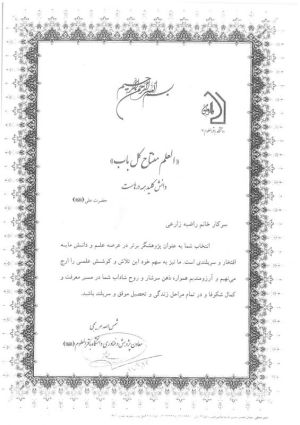 بسم الله الرحمن الرحیم
دانشگاه باقرالعلوم (ع)
«العلم مفتاح کل باب»
دانش کلید همه درهاست
حضرت علی (ع)
سرکار خانم راضیه زارعی
انتخاب شما به عنوان پژوهشگر برتر در عرصه علم و دانش مایه
افتخار و سربلندی است. ما نیز به سهم خود این تلاش و کوشش علمی را ارج
می‌نهیم و آرزومندیم همواره ذهن سرشار و روح شاداب شما در مسیر معرفت و
کمال شکوفا و در تمام مراحل زندگی و تحصیل موفق و سربلند باشید.
شمس الله مریجی
معاون پژوهش و فناوری دانشگاه باقرالعلوم (ع)